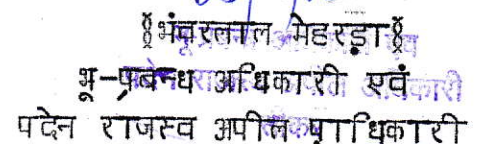 ॥भंवरलाल मेहरड़ा॥
भू-प्रबन्ध अधिकारी एवं
पदेन राजस्व अपील प्राधिकारी